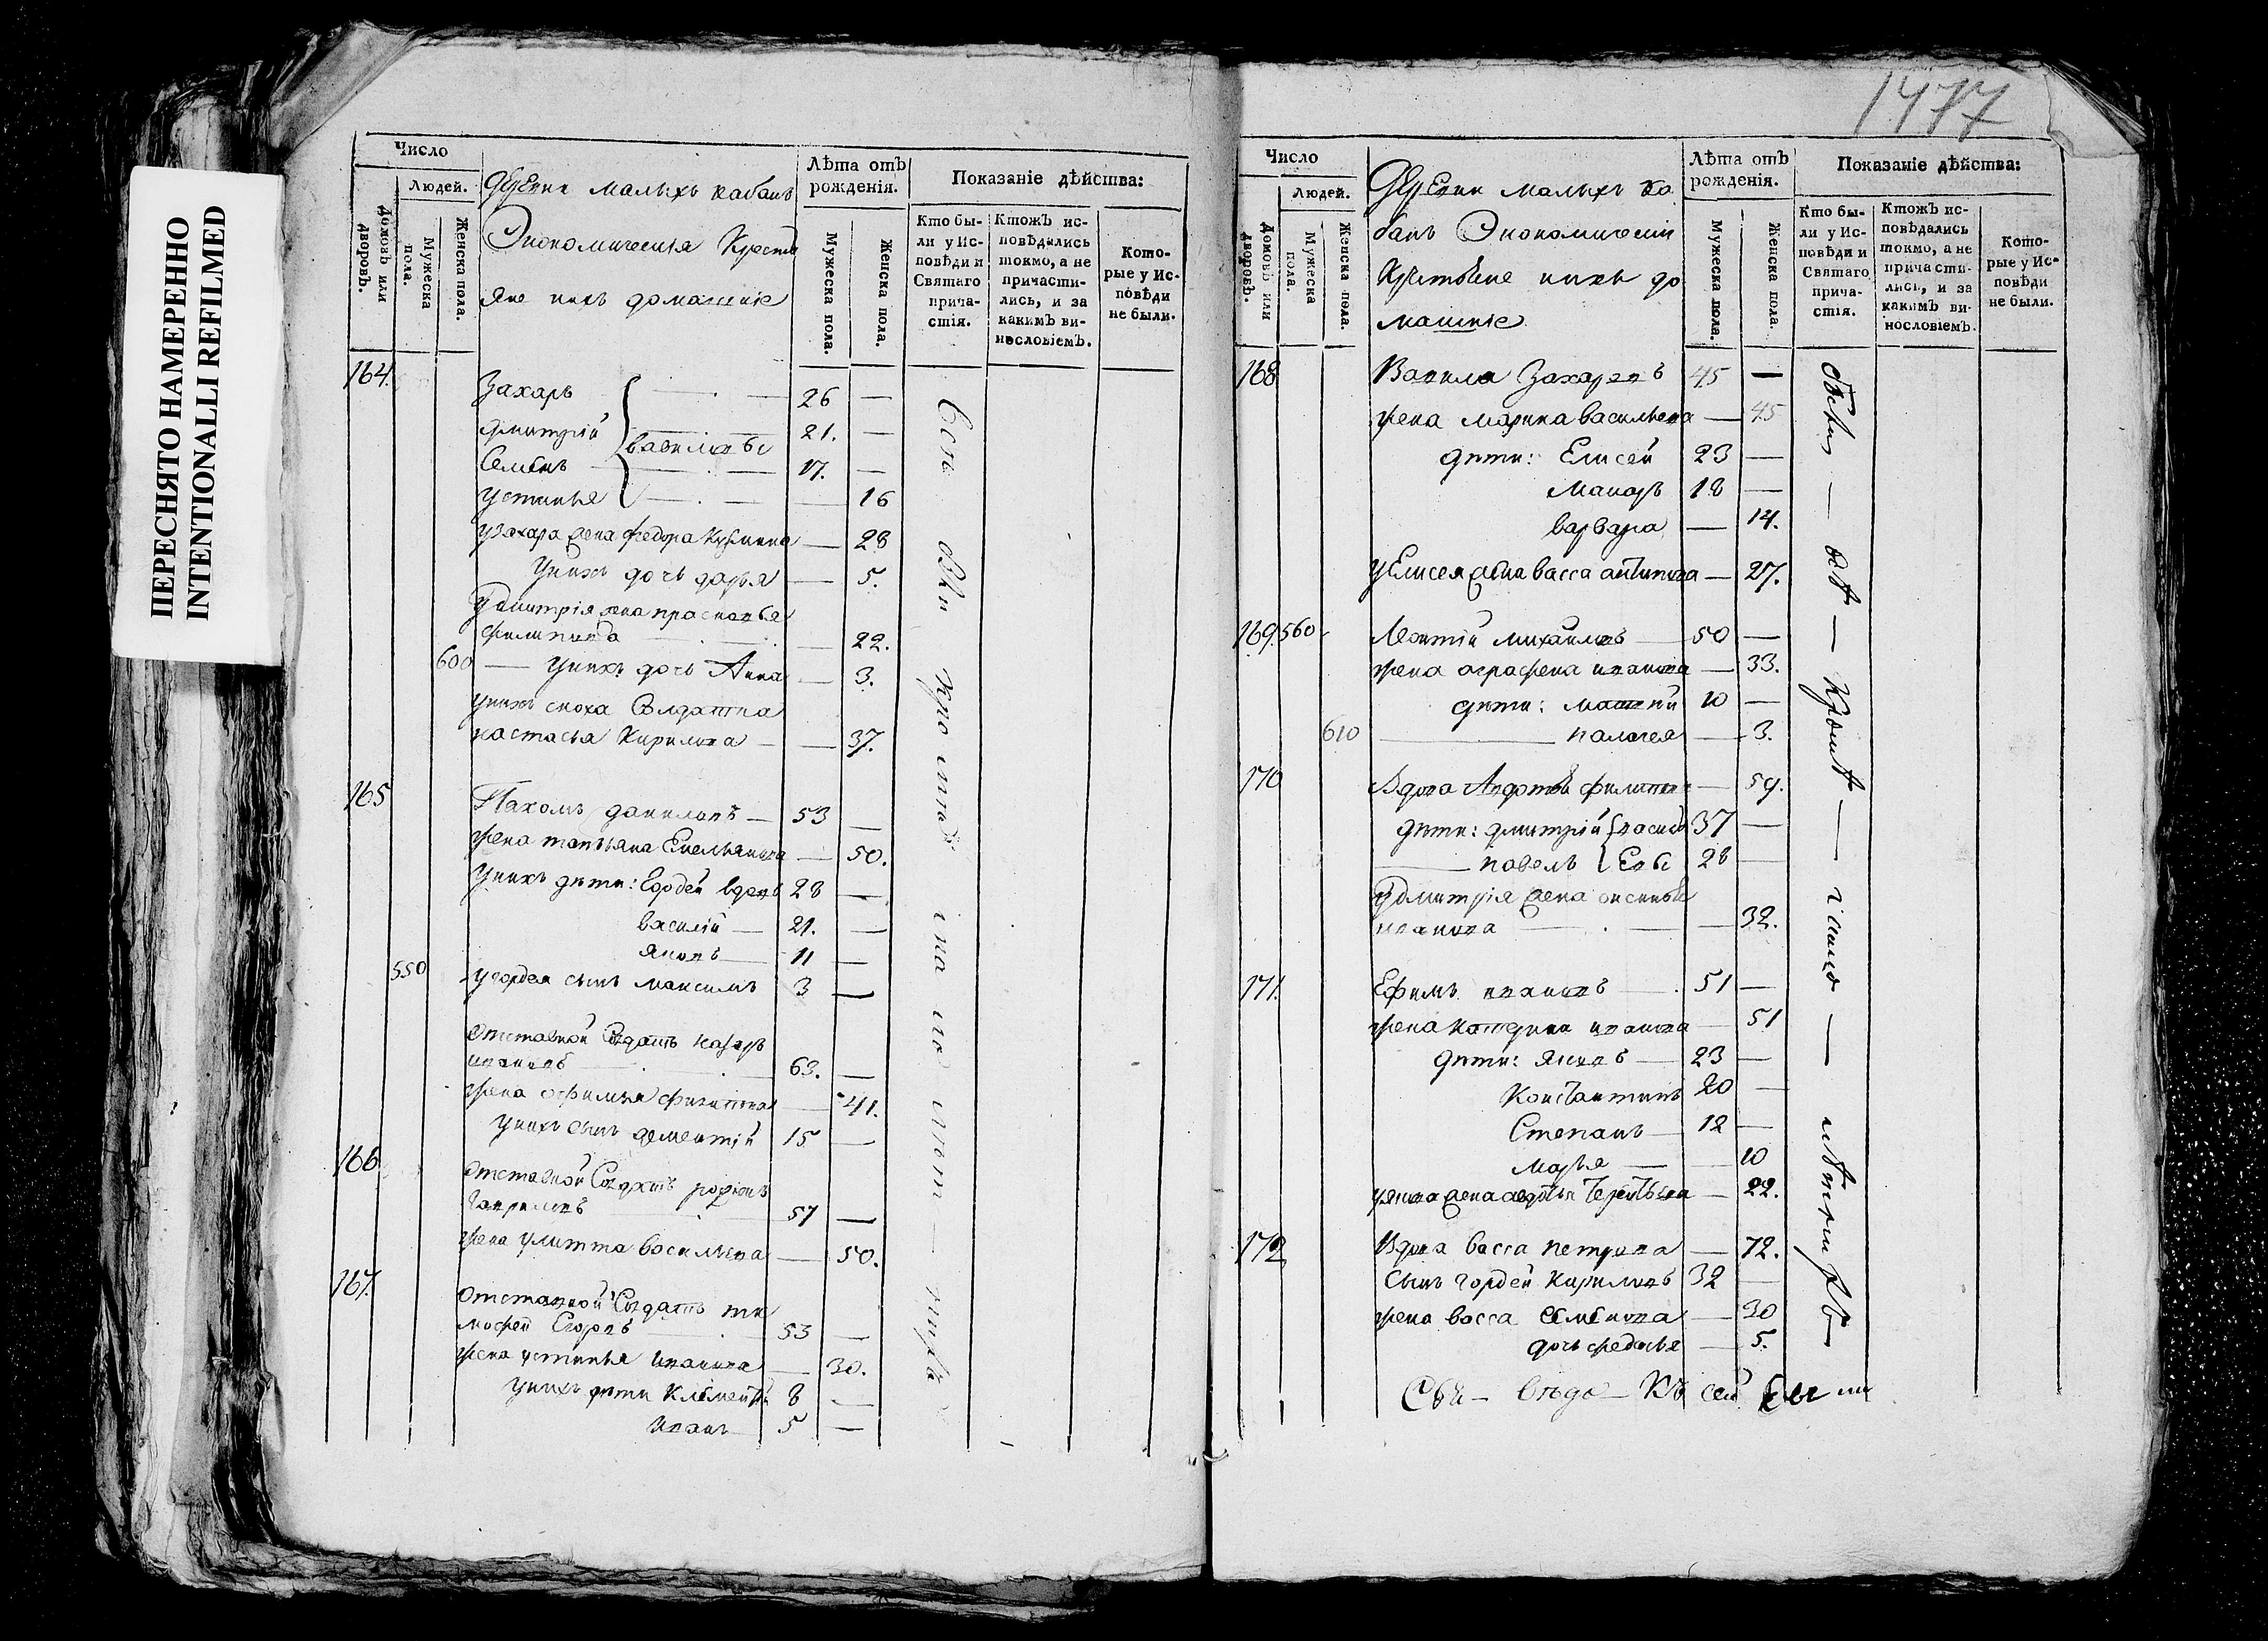 ПЕРЕСНЯТО НАМЕРЕННО
INTENTIONALLI REFILMED
Число
Людей.
Домовъ или дворовъ.
Мужеска пола.
Женска пола.
Деревни малыхъ кабанъ
Экономическия Крестья
яне ихъ домашние
Лѣта отъ рожденія.
Мужеска пола.
Женска пола.
Показаніе дѣйства:
Кто бы-
ли у Ис-
повѣди и
Святаго
прича-
стія.
Ктожъ ис-
повѣдались
токмо, а не
причасти-
лись, и за
какимъ ви-
нословіемъ.
Кото-
рые у Ис-
повѣди
не были.
164.
Захаръ 26 —
Дмитрій 21. —
вавиловы
Семенъ 17. —
устинья — 16
узахара жена федора Кузмина — 28
Унихъ дочь дарья — 5.
Удмитрія жена прасковья
филипова — 22.
600 — Унихъ дочь Анна — 3.
Унихъ сноха Солдатка
настасья Кирилова — 37.
165
Пахомъ даниловъ — 53 —
жена татьяна Емельянова — 50.
Унихъ дети: Гордей вдовъ 28 —
василій — 21. —
яковъ — 11 —
550 угордея сынъ максимъ 3 —
Отставной Солдатъ назаръ
ивановъ 63. —
жена офимья филипова — 41.
Унихъ сынъ дементій 15 —
166
Отставной Солдатъ родіонъ
Гавриловъ 57 —
жена улитта васильева — 50.
167.
Отставной Солдатъ ти
мофей Егоровъ 53 —
жена устинья иванова — 30.
Унихъ дети Клементій 8 —
иванъ 5 —
1477
Число
Людей.
Домовъ или дворовъ.
Мужеска пола.
Женска пола.
Деревни малыхъ ка
банъ Экономическіи
Крестьяне ихъ до
машніе
Лѣта отъ рожденія.
Мужеска пола.
Женска пола.
Показаніе дѣйства:
Кто бы-
ли у Ис-
повѣди и
Святаго
прича-
стія.
Ктожъ ис-
повѣдались
токмо, а не
причасти-
лись, и за
какимъ ви-
нословіемъ.
Кото-
рые у Ис-
повѣди
не были.
168
Вавила Захаровъ 45 —
жена марина васильева — 45
дети: Елисей 23 —
Макаръ 18 —
варвара — 14.
уЕлисея жена васса антипова — 27.
169. 560
Леонтій михайловъ — 50 —
жена аграфена иванова — 33.
дети: матвей 10 —
610 — палагея — 3.
170
Вдова Авдотья филипова — 59.
дети: дмитрій 37 —
василь
евы
павелъ 28 —
Удмитрія жена аксинья
иванова — 32.
171.
Ефимъ ивановъ 51 —
жена катерина иванова — 51
дети: яковъ — 23 —
Константинъ 20 —
Степанъ — 12 —
марья — 10
уякова жена авдотья Терентьева — 22.
172
Вдова васса петрова — 72.
Сынъ гордей Кириловъ 32 —
жена васса семенова — 30
дочь федосья — 5.